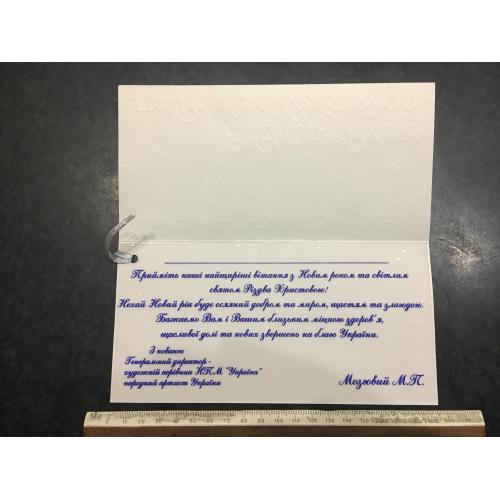 Прийміть наші найщиріші вітання з Новим роком та світлим
святом Різдва Христового!
Нехай Новий рік буде осяяний добром та миром, щастям та злагодою.
Бажаємо Вам і Вашим близьким міцного здоров'я,
щасливої долі та нових звершень на благо України.
З повагою
Генеральний директор -
художній керівник НПМ "Україна"
народний артист України
Мозговий М.П.
10 20 30 40 50 60 70 80 90 100 110